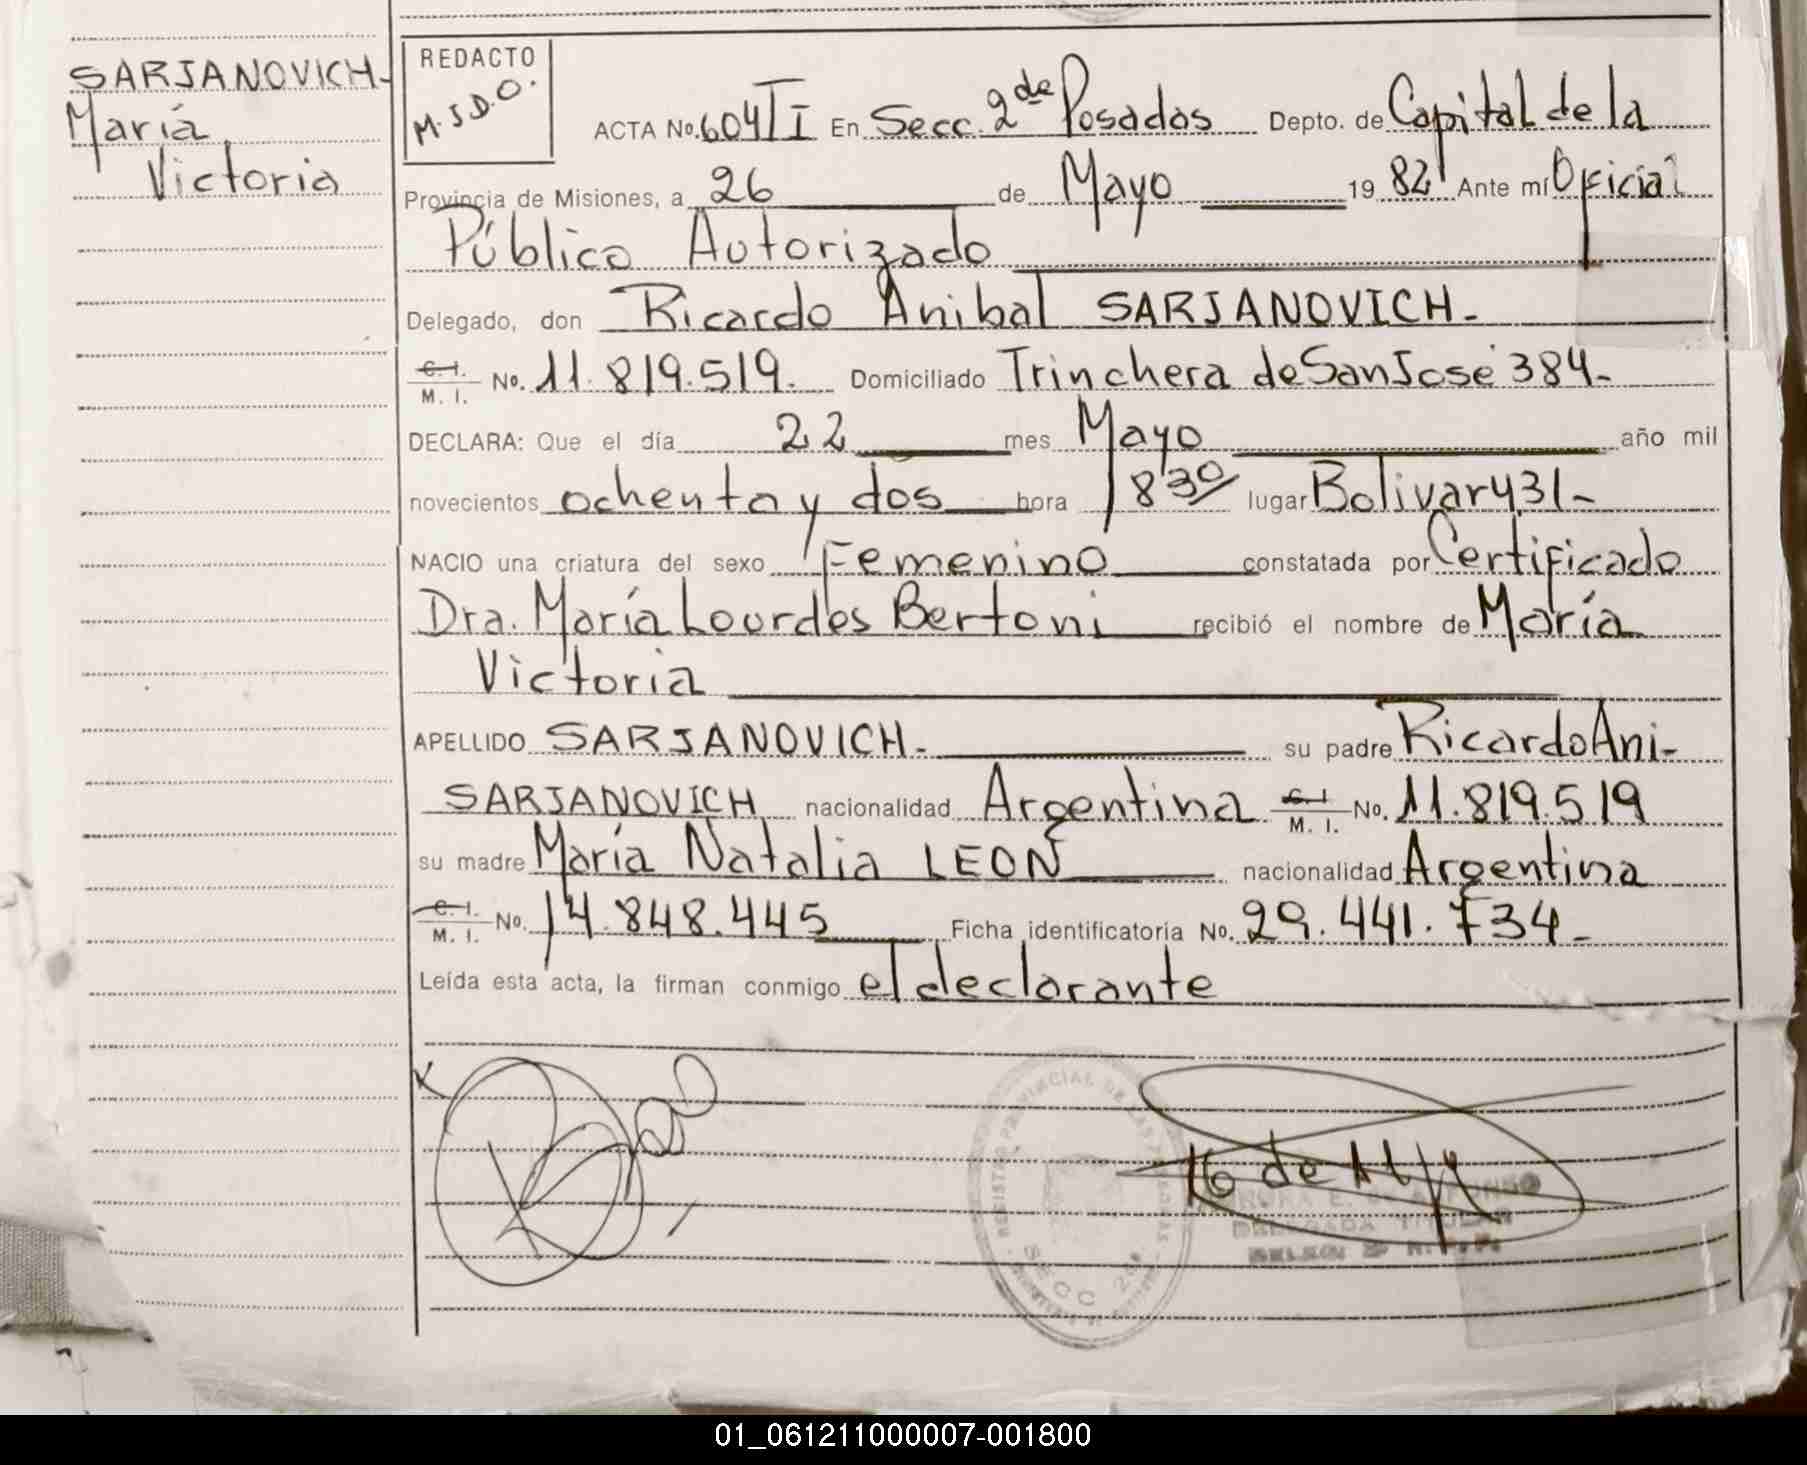 SARJANOVICH-
María
Victoria
REDACTO
M.S.D.O.
ACTA No. 604 T I En Secc. 2de Posadas Depto. de Capital de la
Provincia de Misiones, a 26 de Mayo 1982 Ante mí Oficial
Público Autorizado
Delegado, don Ricardo Anibal SARJANOVICH-
C. I. / M. I. No. 11.819.519. Domiciliado Trinchera de San José 384-
DECLARA: Que el día 22 mes Mayo año mil
novecientos ochenta y dos hora 1830 lugar Bolivar 431-
NACIO una criatura del sexo Femenino constatada por Certificado
Dra. María Lourdes Bertoni recibió el nombre de María
Victoria
APELLIDO SARJANOVICH- su padre Ricardo Ani-
SARJANOVICH nacionalidad Argentina C. I. / M. I. No. 11.819.519
su madre María Natalia LEON nacionalidad Argentina
C. I. / M. I. No. 14.848.445 Ficha identificatoria No. 29.441.734-
Leída esta acta, la firman conmigo el declarante
REGISTRO PROVINCIAL DE LAS PERSONAS
SECC 2da
DELEGADA TITULAR
01_061211000007-001800